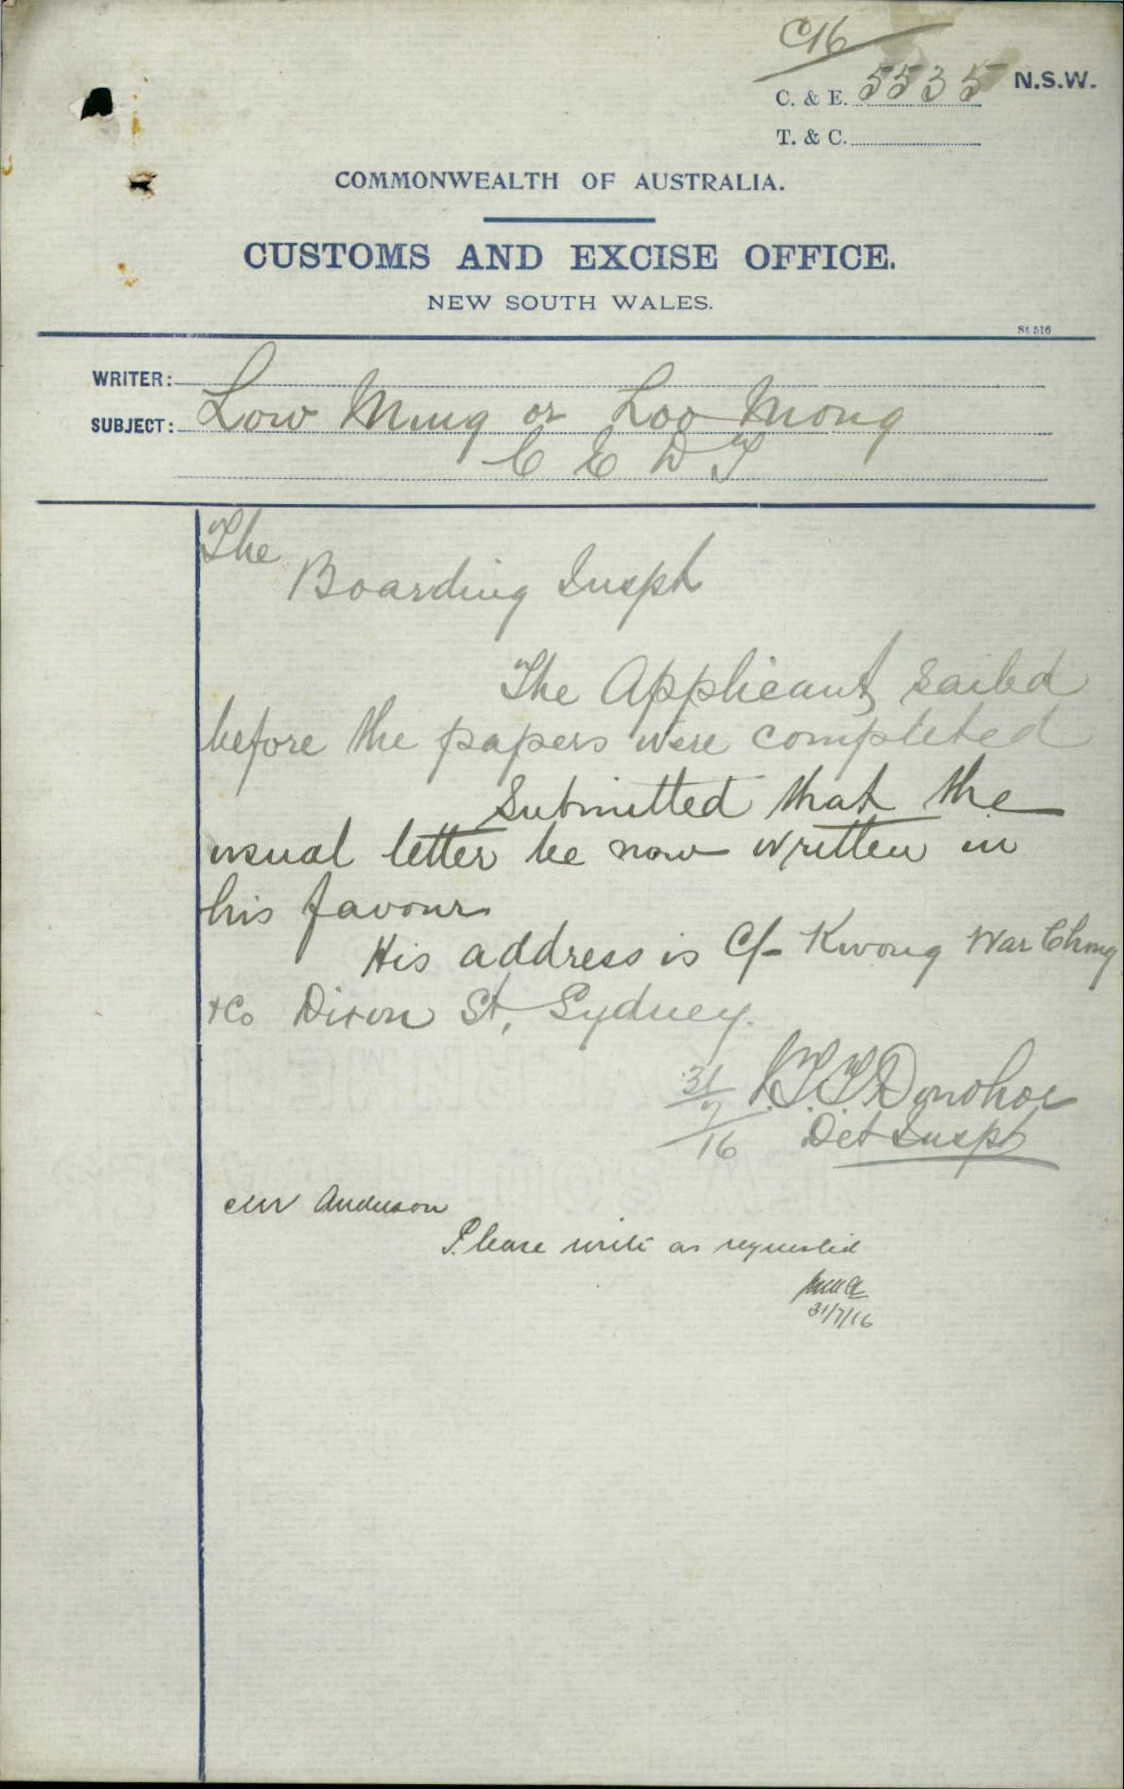 C16
C. & E. 5535 N.S.W.
T. & C.
COMMONWEALTH OF AUSTRALIA.
CUSTOMS AND EXCISE OFFICE.
NEW SOUTH WALES.
St. 516
WRITER:
SUBJECT: Low Mung or Loo Mong
C E D T
The
Boarding Inspr
The Applicant sailed
before the papers were completed
Submitted that the
usual letter be now written in
his favour
His address is C/- Kwong War Chong
+ Co Dixon St, Sydney.
31/7/16 J.T.T. Donohoe
Det Inspr
Mr Anderson
Please write as requested
31/7/16